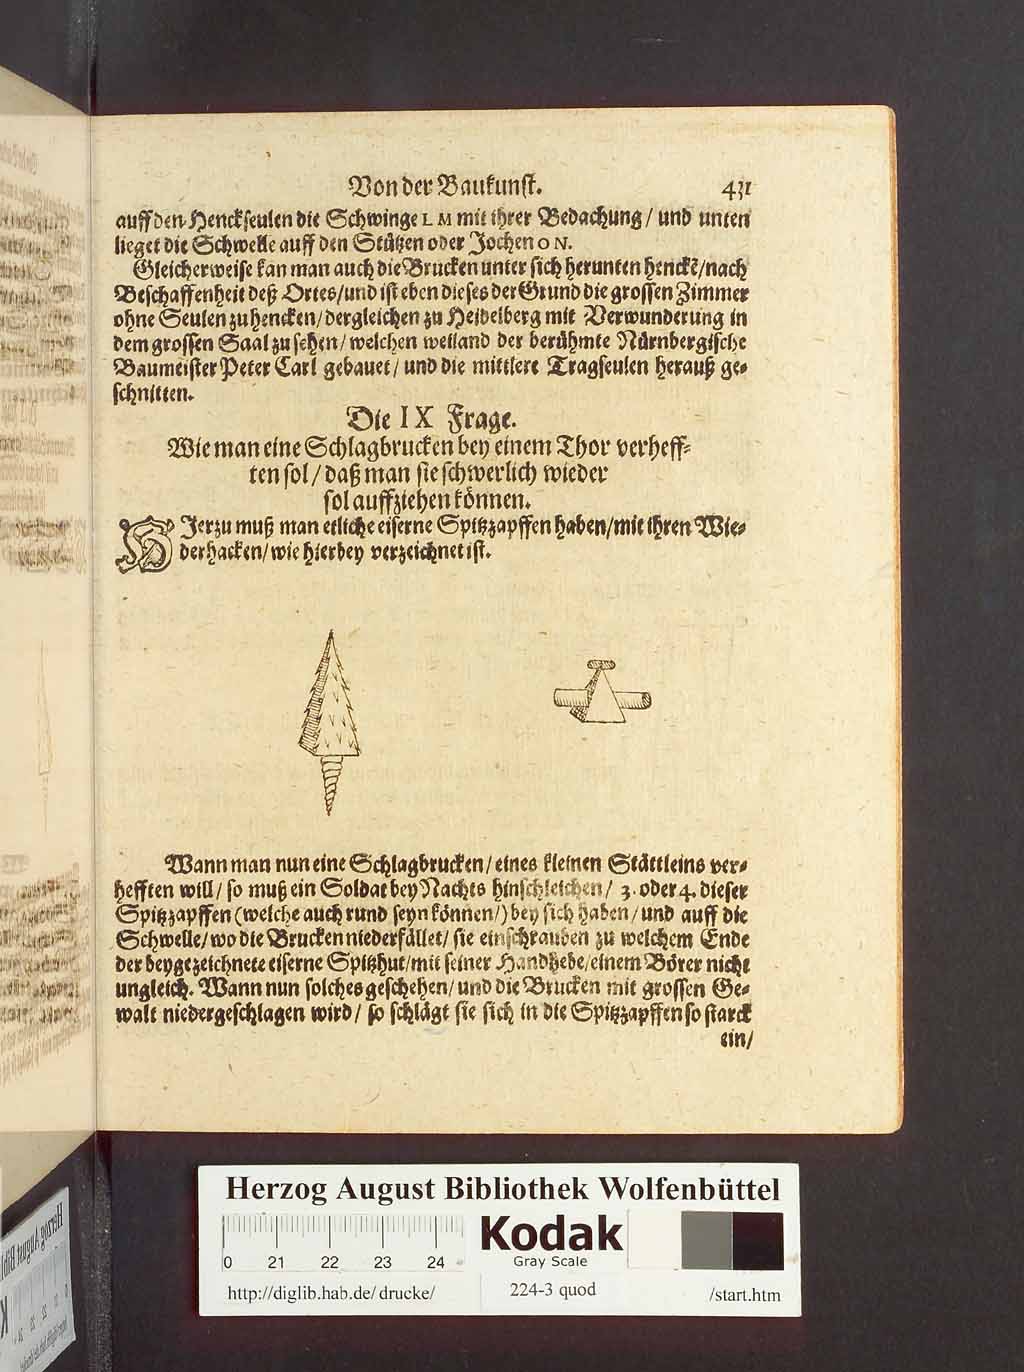 Von der Baukunst. 431
auff den Henckseulen die Schwinge L M mit ihrer Bedachung / und unten
lieget die Schwelle auff den Stützen oder Jochen O N.
Gleicherweise kan man auch die Brucken unter sich herunten henckẽ/nach
Beschaffenheit deß Ortes/und ist eben dieses der Grund die grossen Zimmer
ohne Seulen zu hencken/dergleichen zu Heidelberg mit Verwunderung in
dem grossen Saal zu sehen/welchen weiland der berühmte Nürnbergische
Baumeister Peter Carl gebauet/ und die mittlere Tragseulen herauß ge-
schnitten.
Die IX Frage.
Wie man eine Schlagbrucken bey einem Thor verheff-
ten sol/daß man sie schwerlich wieder
sol auffziehen können.
HJerzu muß man etliche eiserne Spitzzapffen haben/mit ihren Wie-
derhacken/wie hierbey verzeichnet ist.
Wann man nun eine Schlagbrucken/eines kleinen Stättleins ver-
hefften will/ so muß ein Soldat bey Nachts hinschleichen/ 3. oder 4. dieser
Spitzzapffen (welche auch rund seyn können/) bey sich haben/ und auff die
Schwelle/wo die Brucken niederfället/ sie einschrauben zu welchem Ende
der beygezeichnete eiserne Spitzhut/mit seiner Handhebe/einem Börer nicht
ungleich. Wann nun solches geschehen/und die Brucken mit grossen Ge-
walt niedergeschlagen wird/ so schlägt sie sich in die Spitzzapffen so starck
ein/
Herzog August Bibliothek Wolfenbüttel
0 21 22 23 24
Kodak
Gray Scale
http://diglib.hab.de/drucke/ 224-3 quod /start.htm